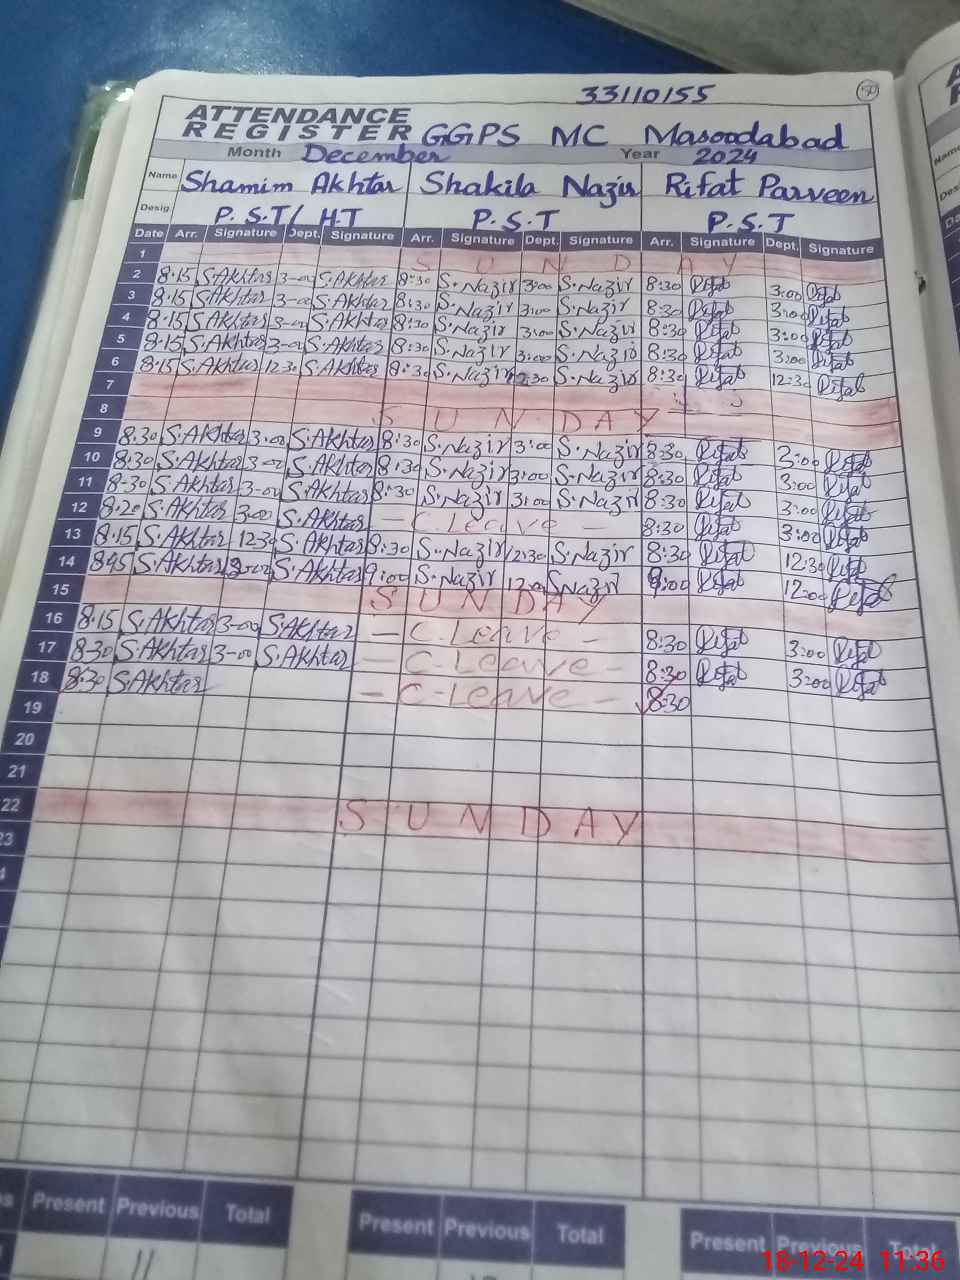 33110155
ATTENDANCE
REGISTER GGPS MC Masoodabad
Month December Year 2024
Name Shamim Akhtar Shakila Nazir Rifat Parveen
Desig P.S.T/H.T P.S.T P.S.T
Date Arr. Signature Dept. Signature Arr. Signature Dept. Signature Arr. Signature Dept. Signature
1 SUNDAY
2 8.15 S.Akhtar 3-00 S.Akhtar 8:30 S.Nazir 3:00 S.Nazir 8:30 Rifat 3:00 Rifat
3 8.15 S.Akhtar 3-00 S.Akhtar 8:30 S.Nazir 3:00 S.Nazir 8:30 Rifat 3:00 Rifat
4 8.15 S.Akhtar 3-00 S.Akhtar 8:30 S.Nazir 3:00 S.Nazir 8:30 Rifat 3:00 Rifat
5 8.15 S.Akhtar 3-00 S.Akhtar 8:30 S.Nazir 3:00 S.Nazir 8:30 Rifat 3:00 Rifat
6 8.15 S.Akhtar 12.30 S.Akhtar 8:30 S.Nazir 12:30 S.Nazir 8:30 Rifat 12:30 Rifat
7
8 SUNDAY
9 8.30 S.Akhtar 3-00 S.Akhtar 8:30 S.Nazir 3:00 S.Nazir 8:30 Rifat 3:00 Rifat
10 8.30 S.Akhtar 3-00 S.Akhtar 8:30 S.Nazir 3:00 S.Nazir 8:30 Rifat 3:00 Rifat
11 8-30 S.Akhtar 3-00 S.Akhtar 8:30 S.Nazir 3:00 S.Nazir 8:30 Rifat 3:00 Rifat
12 8.20 S.Akhtar 3-00 S.Akhtar - C.Leave - 8:30 Rifat 3:00 Rifat
13 8.15 S.Akhtar 12.30 S.Akhtar 8:30 S.Nazir 12:30 S.Nazir 8:30 Rifat 12:30 Rifat
14 S.Akhtar S.Akhtar 9:00 S.Nazir S.Nazir 9:00 Rifat 12:00 Rifat
15 SUNDAY
16 8.15 S.Akhtar 3-00 S.Akhtar - C.Leave - 8:30 Rifat 3:00 Rifat
17 8.30 S.Akhtar 3-00 S.Akhtar - C.Leave - 8:30 Rifat 3:00 Rifat
18 8:30 S.Akhtar - C-Leave - 8:30
19
20
21
22 SUNDAY
23
Present Previous Total Present Previous Total Present Previous Total
11
18-12-24 11:36